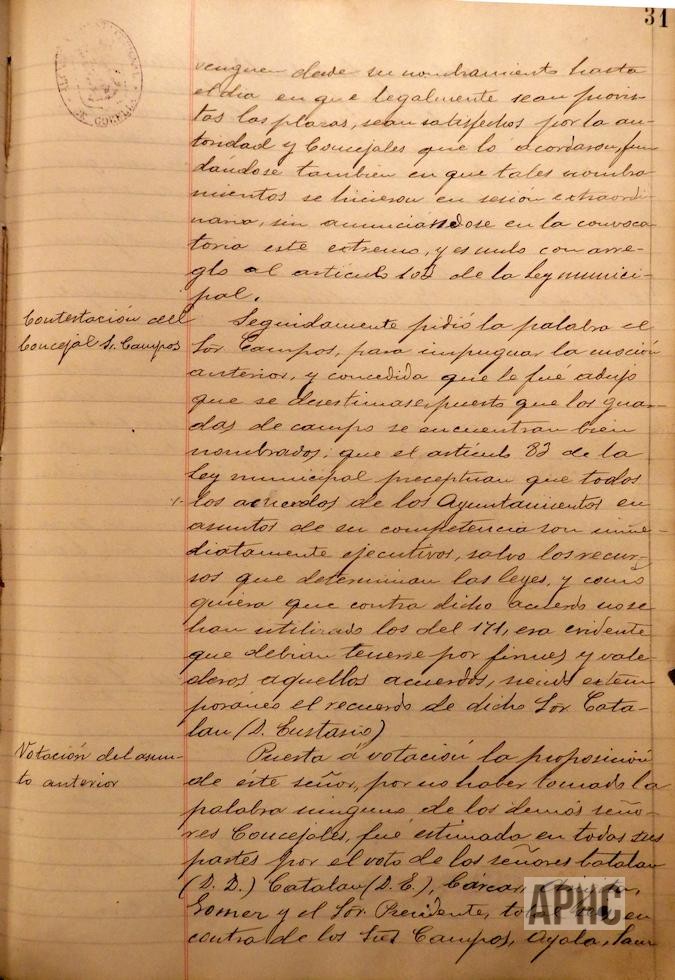 31
venguen desde su nombramiento hasta
el dia en que legalmente sean provis-
tas las plazas, sean satisfechos por la au-
toridad y Concejales que lo acordaron, fun
dándose tambien en que tales nombra
mientos se hicieron en sesión extraordi-
naria, sin anunciándose en la convoca
toria este extremo, y es nulo con arre-
glo al artículo de la Ley munici-
pal.
Contestación del
Concejal Sr. Campos
Seguidamente pidió la palabra el
Sor. Campos, para impugnar la moción
anterior, y concedida que le fué adujo
que se desestimase, puesto que los guar-
das de campo se encuentran bien
nombrados; que el artículo 83 de la
Ley municipal preceptuan que todos
los acuerdos de los Ayuntamientos en
asuntos de su competencia son inme-
diatamente ejecutivos, salvo los recur-
sos que determinan las leyes, y como
quiera que contra dicho acuerdo no se
han utilizado los del 171, era evidente
que debian tenerse por firmes y vale-
deros aquellos acuerdos, siendo extem
poráneo el recuerdo de dicho Sor. Cata-
lan (D. Eustasio)
Votación del asun-
to anterior
Puesta á votación la proposición
de éste señor, por no haber tomado la
palabra ninguno de los demás seño-
res Concejales, fué estimada en todas sus
partes por el voto de los señores Catalan
(D. D.) Catalan (D. E.), Cárcar,
Gomez y el Sor. Presidente, en
contra de los Sres Campos, Ayala,
APHC